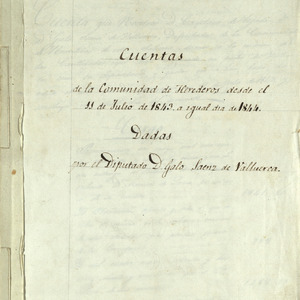 Cuentas
de la Comunidad de Herederos desde el
11 de Julio de 1843, a igual dia de 1844.
Dadas
por el Diputado D. Galo Saenz de Valluerca.